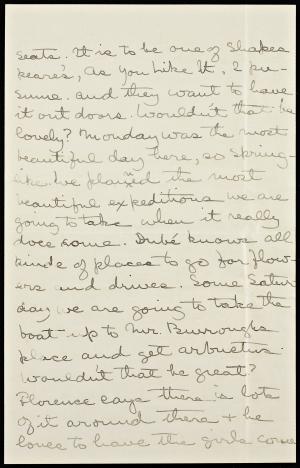 seats. It is to be one of Shakes
peare's, As You Like It, I pre-
sume. and they want to have
it out doors. Wouldn't that be
lovely? Monday was the most
beautiful day here, so spring-
like. We planned the most
beautiful expeditions we are
going to take when it really
does come. Dubé knows all
kinds of places to go for flow-
ers and drives. Some Satur
day we are going to take the
boat up to Mr. Burroughs
place and get arbutus.
Wouldn't that be great?
Florence says there is lots
of it around there + he
loves to have the girls come